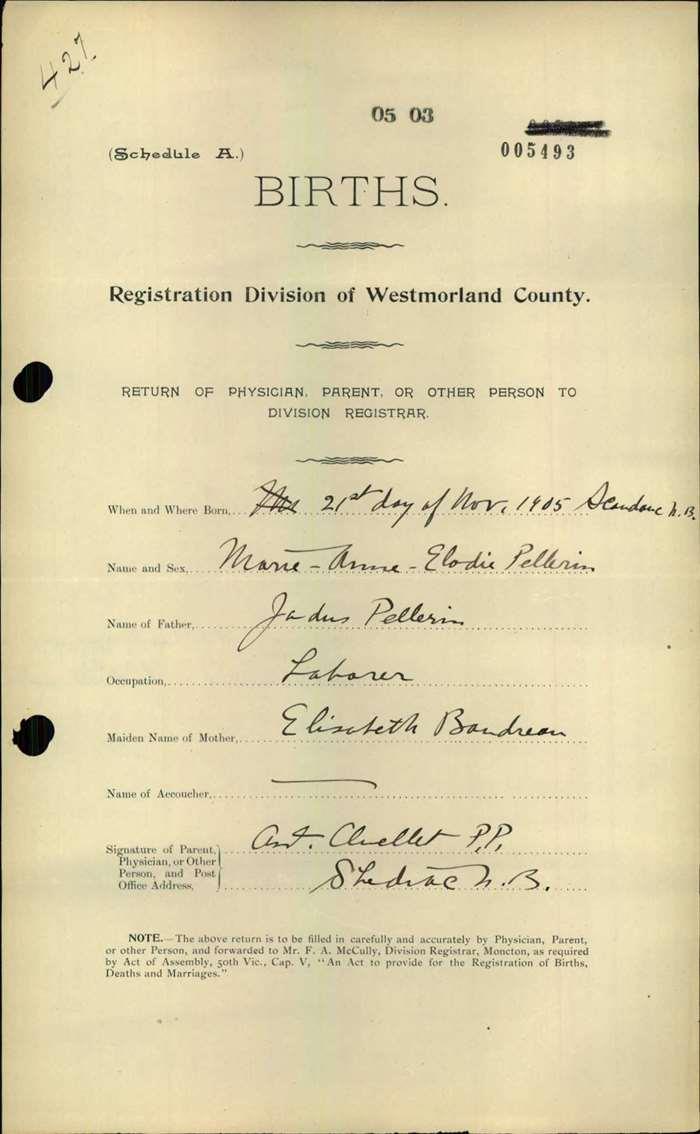 427.
05 03
005493
(Schedule A.)
BIRTHS.
Registration Division of Westmorland County.
RETURN OF PHYSICIAN, PARENT, OR OTHER PERSON TO
DIVISION REGISTRAR.
When and Where Born, 21st day of Nov. 1905 N.B.
Name and Sex, Marie-Anne-Elodie Pellerin
Name of Father, Jadus Pellerin
Occupation, Laborer
Maiden Name of Mother, Elisabeth Boudreau
Name of Accoucher,
Signature of Parent, Physician, or Other Person, and Post Office Address, Ant. Ouellet P.P.
Shediac N.B.
NOTE.—The above return is to be filled in carefully and accurately by Physician, Parent,
or other Person, and forwarded to Mr. F. A. McCully, Division Registrar, Moncton, as required
by Act of Assembly, 50th Vic., Cap. V, "An Act to provide for the Registration of Births,
Deaths and Marriages."